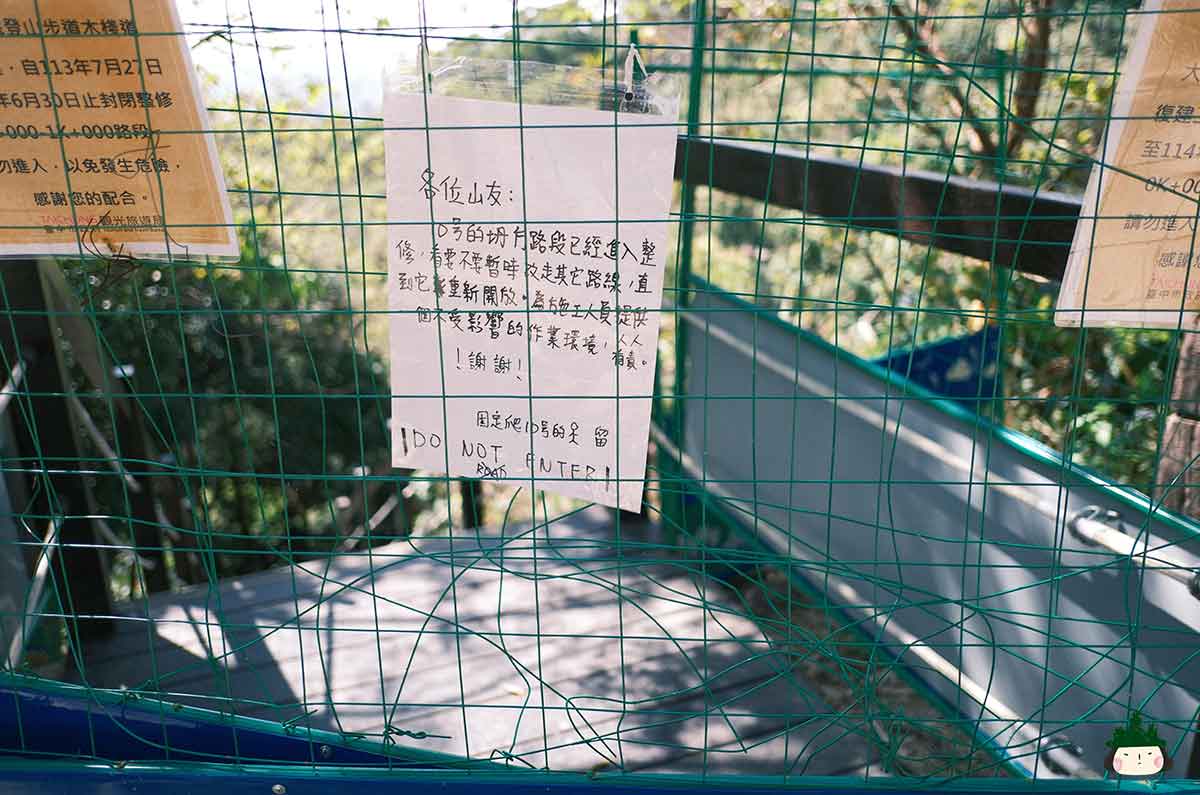 登山步道木棧道
，自113年7月27日
年6月30日止封閉整修
-000-1K+000路段，
勿進入，以免發生危險，
感謝您的配合。
TAICHUNG 臺中市政府觀光旅遊局
各位山友：
10号的坍方路段已經進入整
修，看要不要暫時改走其它路線，直
到它能重新開放。為施工人員提供
一個不受影響的作業環境，人人
有責。
！謝謝！
固定爬10号的 留
! DO NOT ENTER !
ROAD
復建
至114
0K+0
請勿進入
感謝
TAICHUNG
臺中市